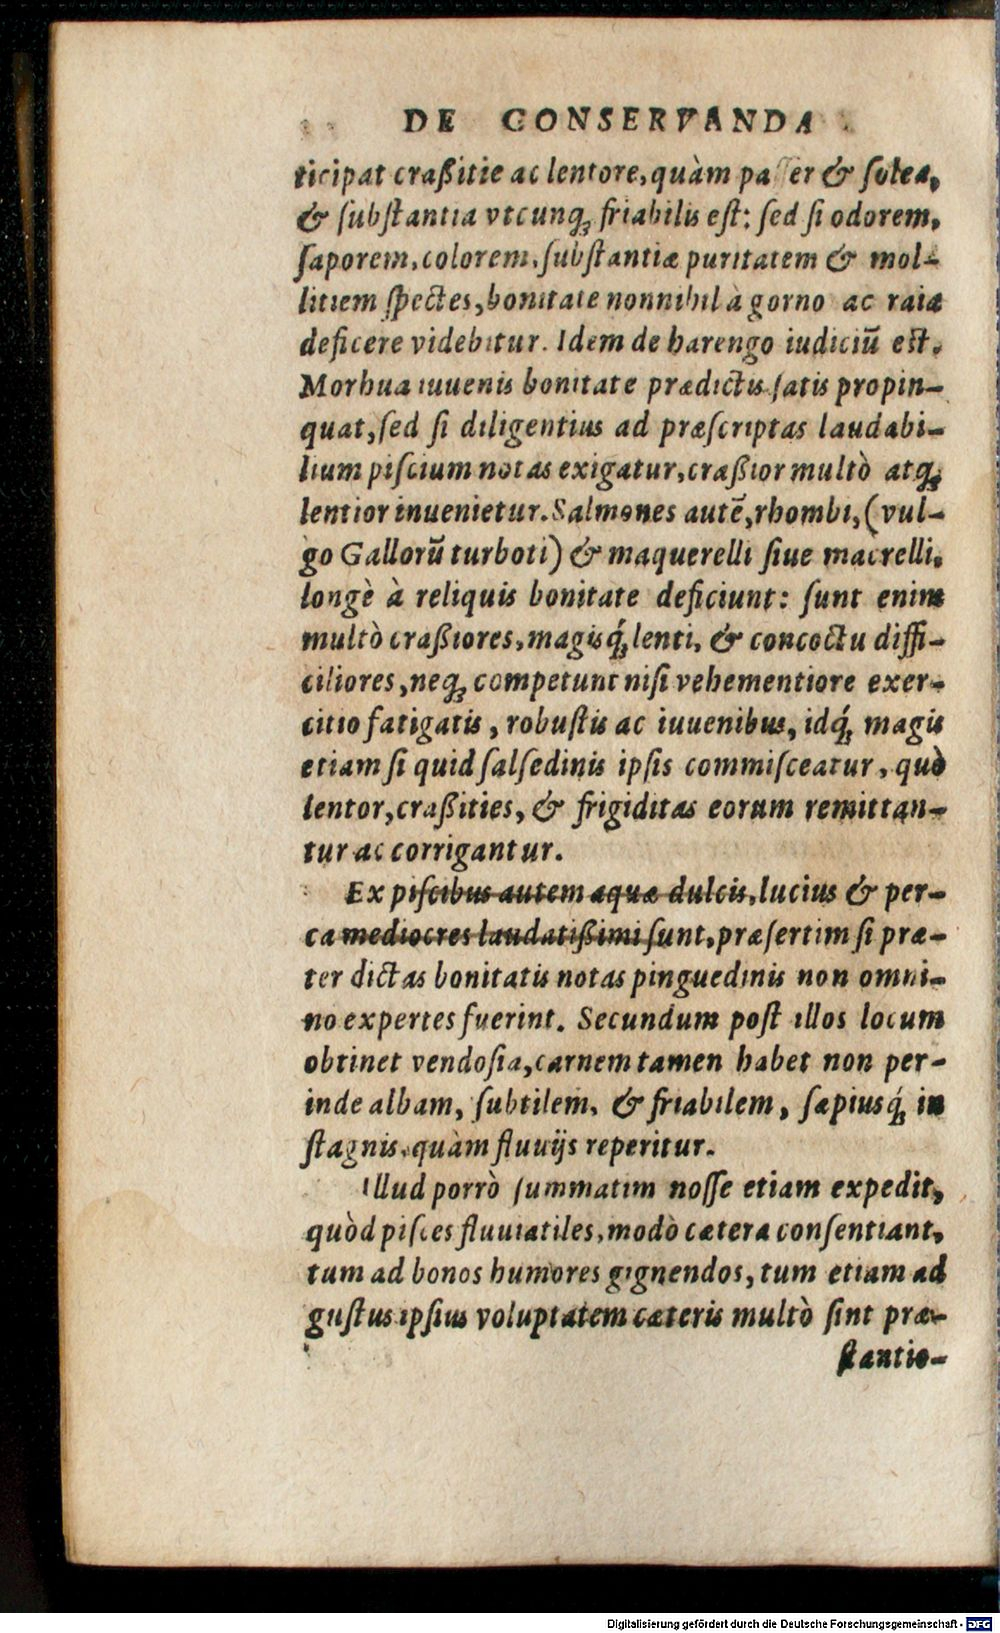 DE CONSERVANDA
ticipat craßitie ac lentore, quàm passer & solea,
& ſubſtantia vtcunq; friabilis eſt: ſed ſi odorem,
ſaporem, colorem, ſubſtantiæ puritatem & mol-
litiem ſpectes, bonitate nonnihil à gorno ac raia
deficere videbitur. Idem de harengo iudiciũ eſt.
Morhua iuuenis bonitate prædictis ſatis propin-
quat, ſed ſi diligentius ad præſcriptas laudabi-
lium piſcium notas exigatur, craßior multò atq;
lentior inuenietur. Salmones autẽ, rhombi, (vul-
go Gallorũ turboti) & maquerelli ſiue macrelli,
longè à reliquis bonitate deficiunt: ſunt enim
multò craßiores, magisq́; lenti, & concoctu diffi-
ciliores, neq; competunt niſi vehementiore exer-
citio fatigatis, robuſtis ac iuuenibus, idq́; magis
etiam ſi quid ſalſedinis ipſis commiſceatur, quò
lentor, craßities, & frigiditas eorum remittan-
tur ac corrigantur.
Ex piſcibus autem aquæ dulcis, lucius & per-
ca mediocres laudatißimi ſunt, præſertim ſi præ-
ter dictas bonitatis notas pinguedinis non omni-
no expertes fuerint. Secundum poſt illos locum
obtinet vendoſia, carnem tamen habet non per-
inde albam, ſubtilem, & friabilem, ſæpiusq́; in
ſtagnis, quàm fluuijs reperitur.
Illud porrò ſummatim noſſe etiam expedit,
quòd piſces fluuiatiles, modò cætera conſentiant,
tum ad bonos humores gignendos, tum etiam ad
guſtus ipſius voluptatem cæteris multò ſint præ-
ſtantio-
Digitalisierung gefördert durch die Deutsche Forschungsgemeinschaft - DFG